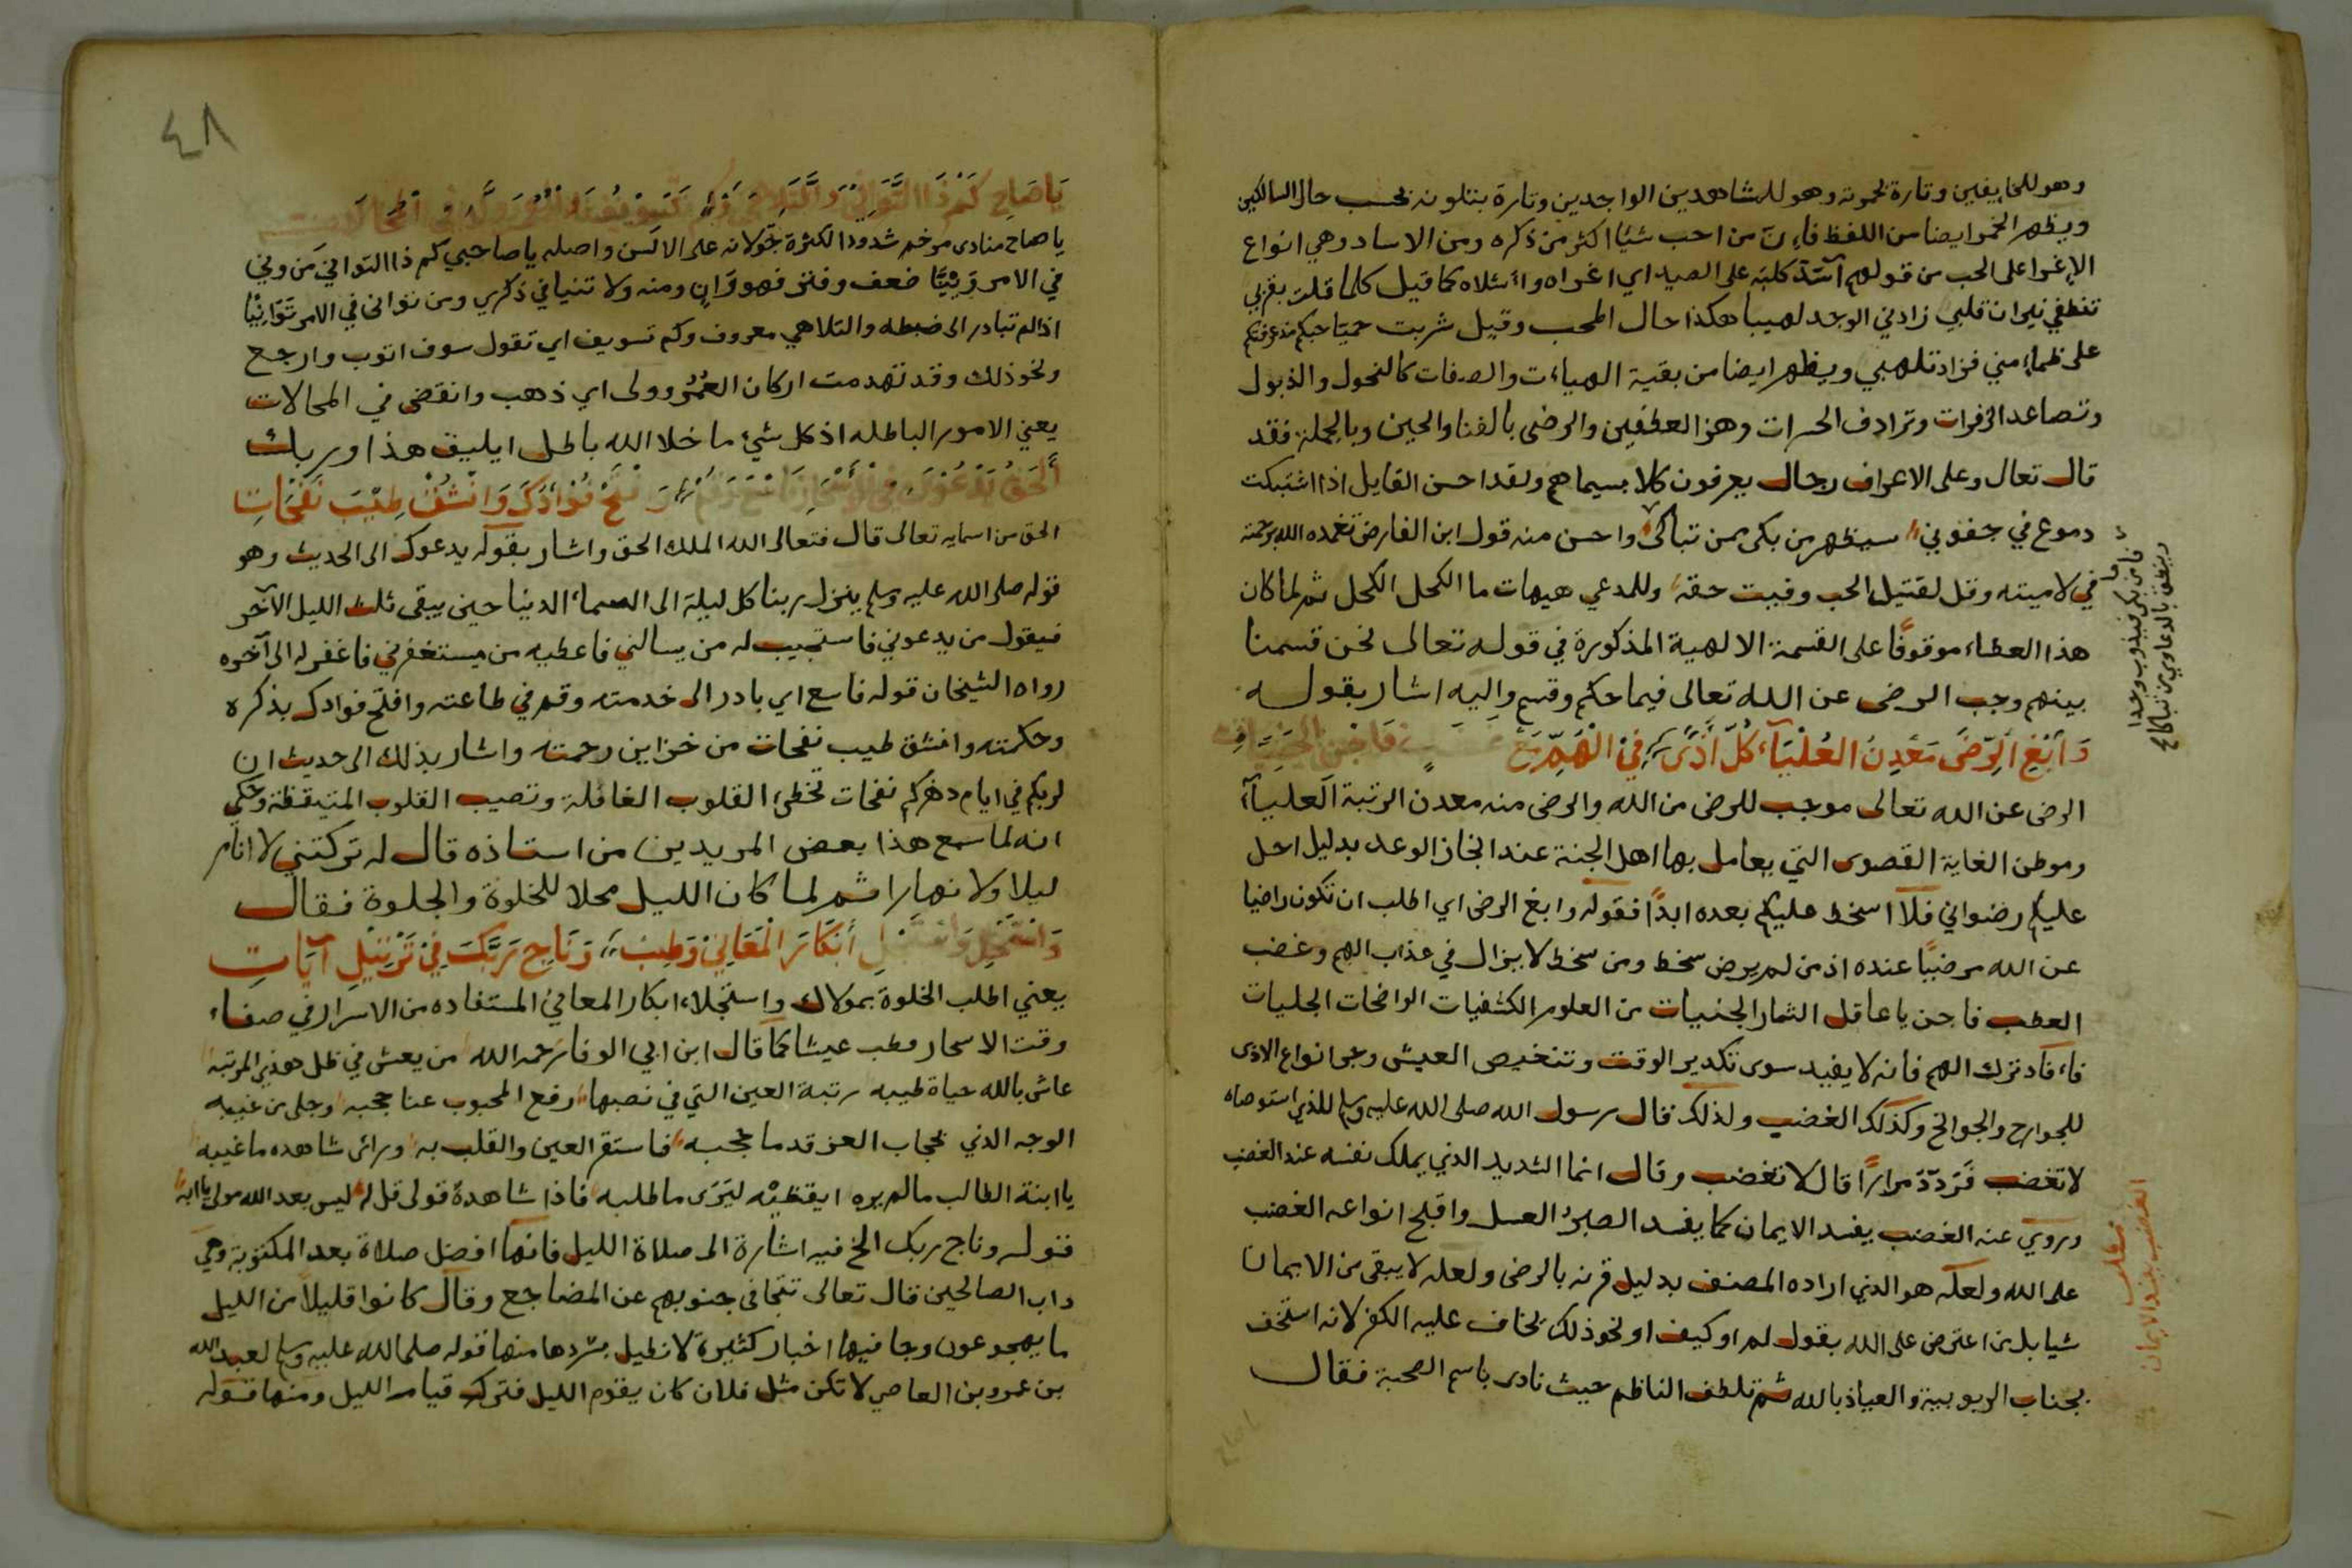 وهو للخايفين وتارة بخموته وهو للمشاهدين الواجدين وتارة بتلونه بحسب حال السالكين
ويظهر الخمر ايضا من اللفظ فان من احب شيا اكثر من ذكره ومن الاساد وهي انواع
الإغرا على الحب من قولهم كلبه على الصيد اي اغراه كما قيل كلما قلت بقربي
تنطفي نيران قلبي زادني الوجد لهيبا هكذا حال المحب وقيل شربت حميا حبكم
على ظماء مني فزاد تلهبي ويظهر ايضا من بقية الهياءت والصفات كالنحول والذبول
وتصاعد الزفرات وترادف الحسرات وهز العطفين والرضى بالفنا والحين وبالجملة فقد
قال تعال وعلى الاعراف رجال يعرفون كلا بسيماهم ولقد احسن القايل اذا اشتبكت
دموع في جفوني سيظهر من بكى ممن تباكى واحسن منه قول ابن الفارض تغمده الله برحمته
في لاميته وقل لقتيل الحب وفيت حقه وللمدعي هيهات ما الكحل الكحل ثم لما كان
هذا العطاء موقوفًا على القسمة الالهية المذكورة في قوله تعالى نحن قسمنا
بينهم وجب الرضى عن الله تعالى فيما حكم وقسم واليه اشار بقوله
وَابْغِ الرِّضَى مَعْدِنَ العُلْيَآءِ كُلُّ أَذًى فِي الْهَمِّ مَعْ غَضَبٍ فَاجْنِ الْجَنِيَّاتِ
الرضى عن الله تعالى موجب للرضى من الله والرضى منه معدن الرتبة العليآء
وموطن الغاية القصوى التي يعامل بها اهل الجنة عند انجاز الوعد بدليل احل
عليكم رضواني فلا اسخط عليكم بعده ابدًا فقوله وابغ الرضى اي اطلب ان تكون راضيا
عن الله مرضيًا عنده اذ من لم يرض سخط ومن سخط لا يزال في عذاب الهم وغضب
العطب فاجن يا عاقل الثمار الجنيات من العلوم الكشفيات الواضحات الجليات
فاءفاد ترك الهم فانه لا يفيد سوى تكدير الوقت وتنغيص العيش وعلى انواع الاذى
للجوارح والجوانح وكذلك الغضب ولذلك قال رسول الله صلى الله عليه وسلم للذي استوصاه
لا تغضب فَرَدَّدَ مرارًا قال لا تغضب وقال انما الشديد الذي يملك نفسه عند الغضب
وروي عنه الغضب يفسد الايمان كما يفسد الصبرُ العسل واقبح انواعه الغضب
على الله ولعله هو الذي اراده المصنف بدليل قرنه بالرضى ولعله لا يبقى من الايمان
شيا بل من اعترض على الله بقول لم او كيف او نحو ذلك يخاف عليه الكفر لانه استخف
بجناب الربوبية والعياذ بالله ثم تلطف الناظم حيث نادى باسم الصحبة فقال
ياصاح
فان بكى فيذوب وجدا
وينطق بالدعاوى من تباكا صح
مطلب
الغضب يفسد الايمان
٤٨
يَا صَاحِ كَمْ ذَا التَّوَانِي وَالتَّلَاهِي وَكَمْ تَسْوِيفُ الْعُمْرُ وَلَّى فِي الْمَحَالَاتِ
يا صاح منادى مرخم شذوذا لكثرة جولانه على الالسن واصله يا صاحبي كم ذا التواني من وني
في الامر وَنِيًّا ضعف وفتر فهو وَانٍ ومنه ولا تنيا في ذكري ومن توانى في الامر تَوَانِيًا
اذا لم تبادر الى ضبطه والتلاهي معروف وكم تسويف اي تقول سوف اتوب وارجع
ونحو ذلك وقد تهدمت اركان العُمُر وولى اي ذهب وانقضى في المحالات
يعني الامور الباطله اذ كل شئ ما خلا الله باطل ايليق هذا وربك
أَلْحَقُّ يَدْعُوكَ فِي الْأَسْحَارِ فَاسْعَ وَقُمْ وَافْتَحْ فُؤَادَكَ وَانْشُقْ طِيْبَ نَفْحَاتِ
الحق من اسمايه تعالى قال فتعالى الله الملك الحق واشار بقوله يدعوك الى الحديث وهو
قوله صلى الله عليه وسلم ينزل ربنا كل ليلة الى السماء الدنيا حين يبقى ثلث الليل الآخر
فيقول من يدعوني فاستجيب له من يسالني فاعطيه من يستغفرني فاغفر له الى آخره
رواه الشيخان قوله فاسع اي بادر الى خدمته وقم في طاعته وافتح فوادك بذكره
وحكمته وانشق طيب نفحات من خزاين رحمته واشار بذلك الى حديث ان
لربكم في ايام دهركم نفحات تخطئ القلوب الغافلة وتصيب القلوب المتيقظة وحكي
انه لما سمع هذا بعض المريدين من استاذه قال له تركتني لا انام
ليلا ولا نهارا ثم لما كان الليل محلا للخلوة والجلوة فقال
وَاسْتَجْلِ أَبْكَارَ الْمَعَانِي وَطِبْ وَنَاجِ رَبَّكَ فِيْ تَرْتِيْلِ آيَاتِ
يعني اطلب الخلوة بمولاك واستجلاء ابكار المعاني المستفاده من الاسرار في صفاء
وقت الاسحار وطب عيشا كما قال ابن ابي الوفا رحمه الله من يعش في ظل هذي المرتبه
عاش بالله حياة طيبه رتبة العين التي في نصبها رفع المحبوب عنا حجبه وجلى من غيبه
الوجه الذي بحجاب العز قد ما حجبه فاستقر العين والقلب به وراى شاهده ما غيبه
يا ابنة الطالب ما لم يره ايقظيْه ليَرَى ما طلبه فاذا شاهدهُ قولى قل له ليس بعد الله مولى يا ابه
قوله وناج ربك الخ فيه اشارة الى صلاة الليل فانها افضل صلاة بعد المكتوبة وهي
داب الصالحين قال تعالى تتجافى جنوبهم عن المضاجع وقال كانوا قليلاً من الليل
ما يهجعون وجا فيها اخبار كثيرة لا نطيل بسردها منها قوله صلى الله عليه وسلم لعبد الله
بن عمرو بن العاصي لا تكن مثل فلان كان يقوم الليل فترك قيام الليل ومنها قوله